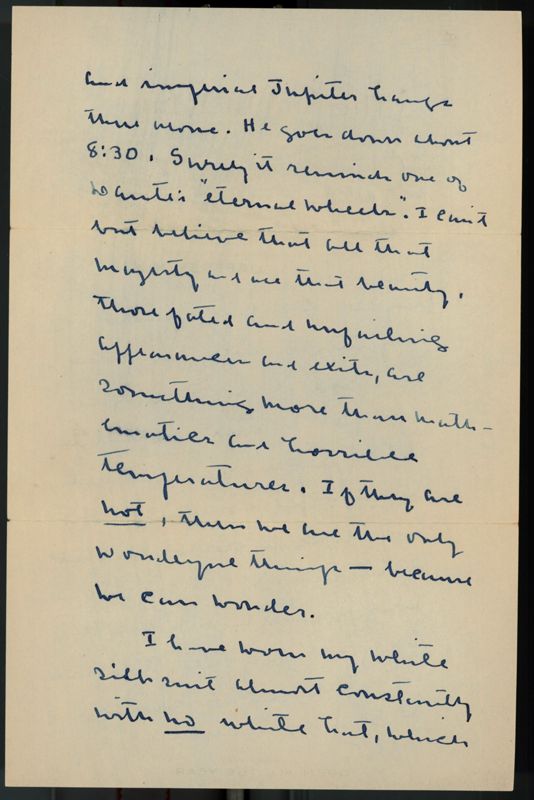 and imperial Jupiter hangs
there alone. He goes down about
8:30. Surely it reminds one of
Dante's "eternal wheels". I can't
but believe that all that
majesty and all that beauty,
those fated and unfailing
appearances and exits, are
something more than math-
ematics and horrible
temperatures. If they are
not, then we are the only
wonderful things — because
we can wonder.
I have worn my white
silk suit almost constantly
with no white hat, which